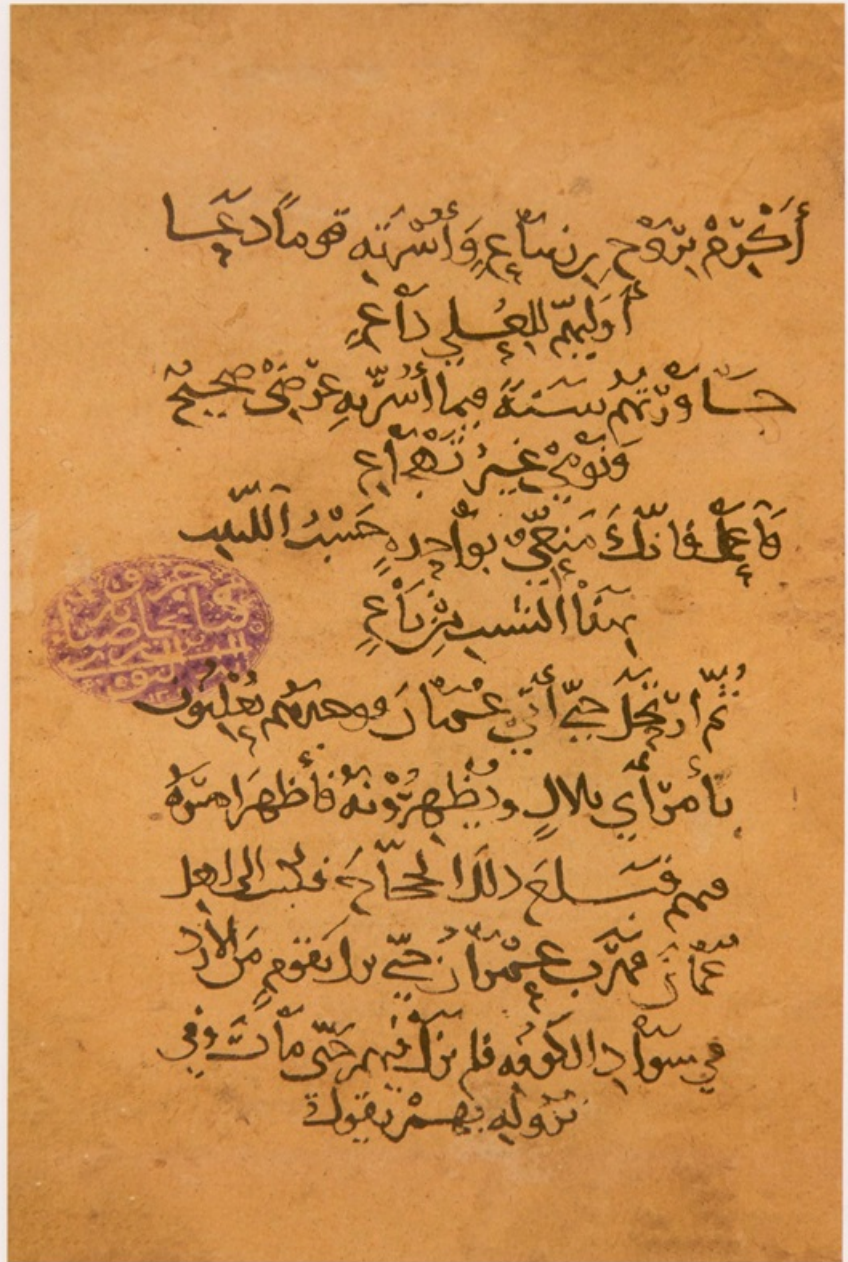 أَكْرِمْ بِرَوْحِ بنِ زِنبَاعٍ وَأُسْرَتِهِ قوماً دَعَا
أَوَّلِيهِمْ لِلعُلى دَاعٍ
جَاوَرْتُهُمْ سَنَةً فيما أُسَرُّ بِهِ عِرْضِي صحيحٌ
وَنَوْمِي غيرُ تَهْجاعِ
فَاعْمَلْ فإنَّكَ مَنعِيٌّ بواحِدةٍ حَسْبُ اللَّبيب
بهذا الشيب مِن ناعٍ
ثُمَّ ارْتَحَلَ حتّى أتى عُمَانَ فوجدهم يُعَظِّمُونَ
أمرَ أبي بلالٍ ويُظْهِرُونَهُ فأظهَرَ امرَهُ
فيهم فبَلغَ ذلك الحجّاجَ فكتب الى اهل
عُمَانَ فهَرَبَ عِمْرَانُ حتّى نزل بقَومٍ مِنَ الأزد
في سَوَادِ الكوفة فلم يزل فيهم حَتّى مَاتَ وفي
نُزُولِهِ بهم يقول